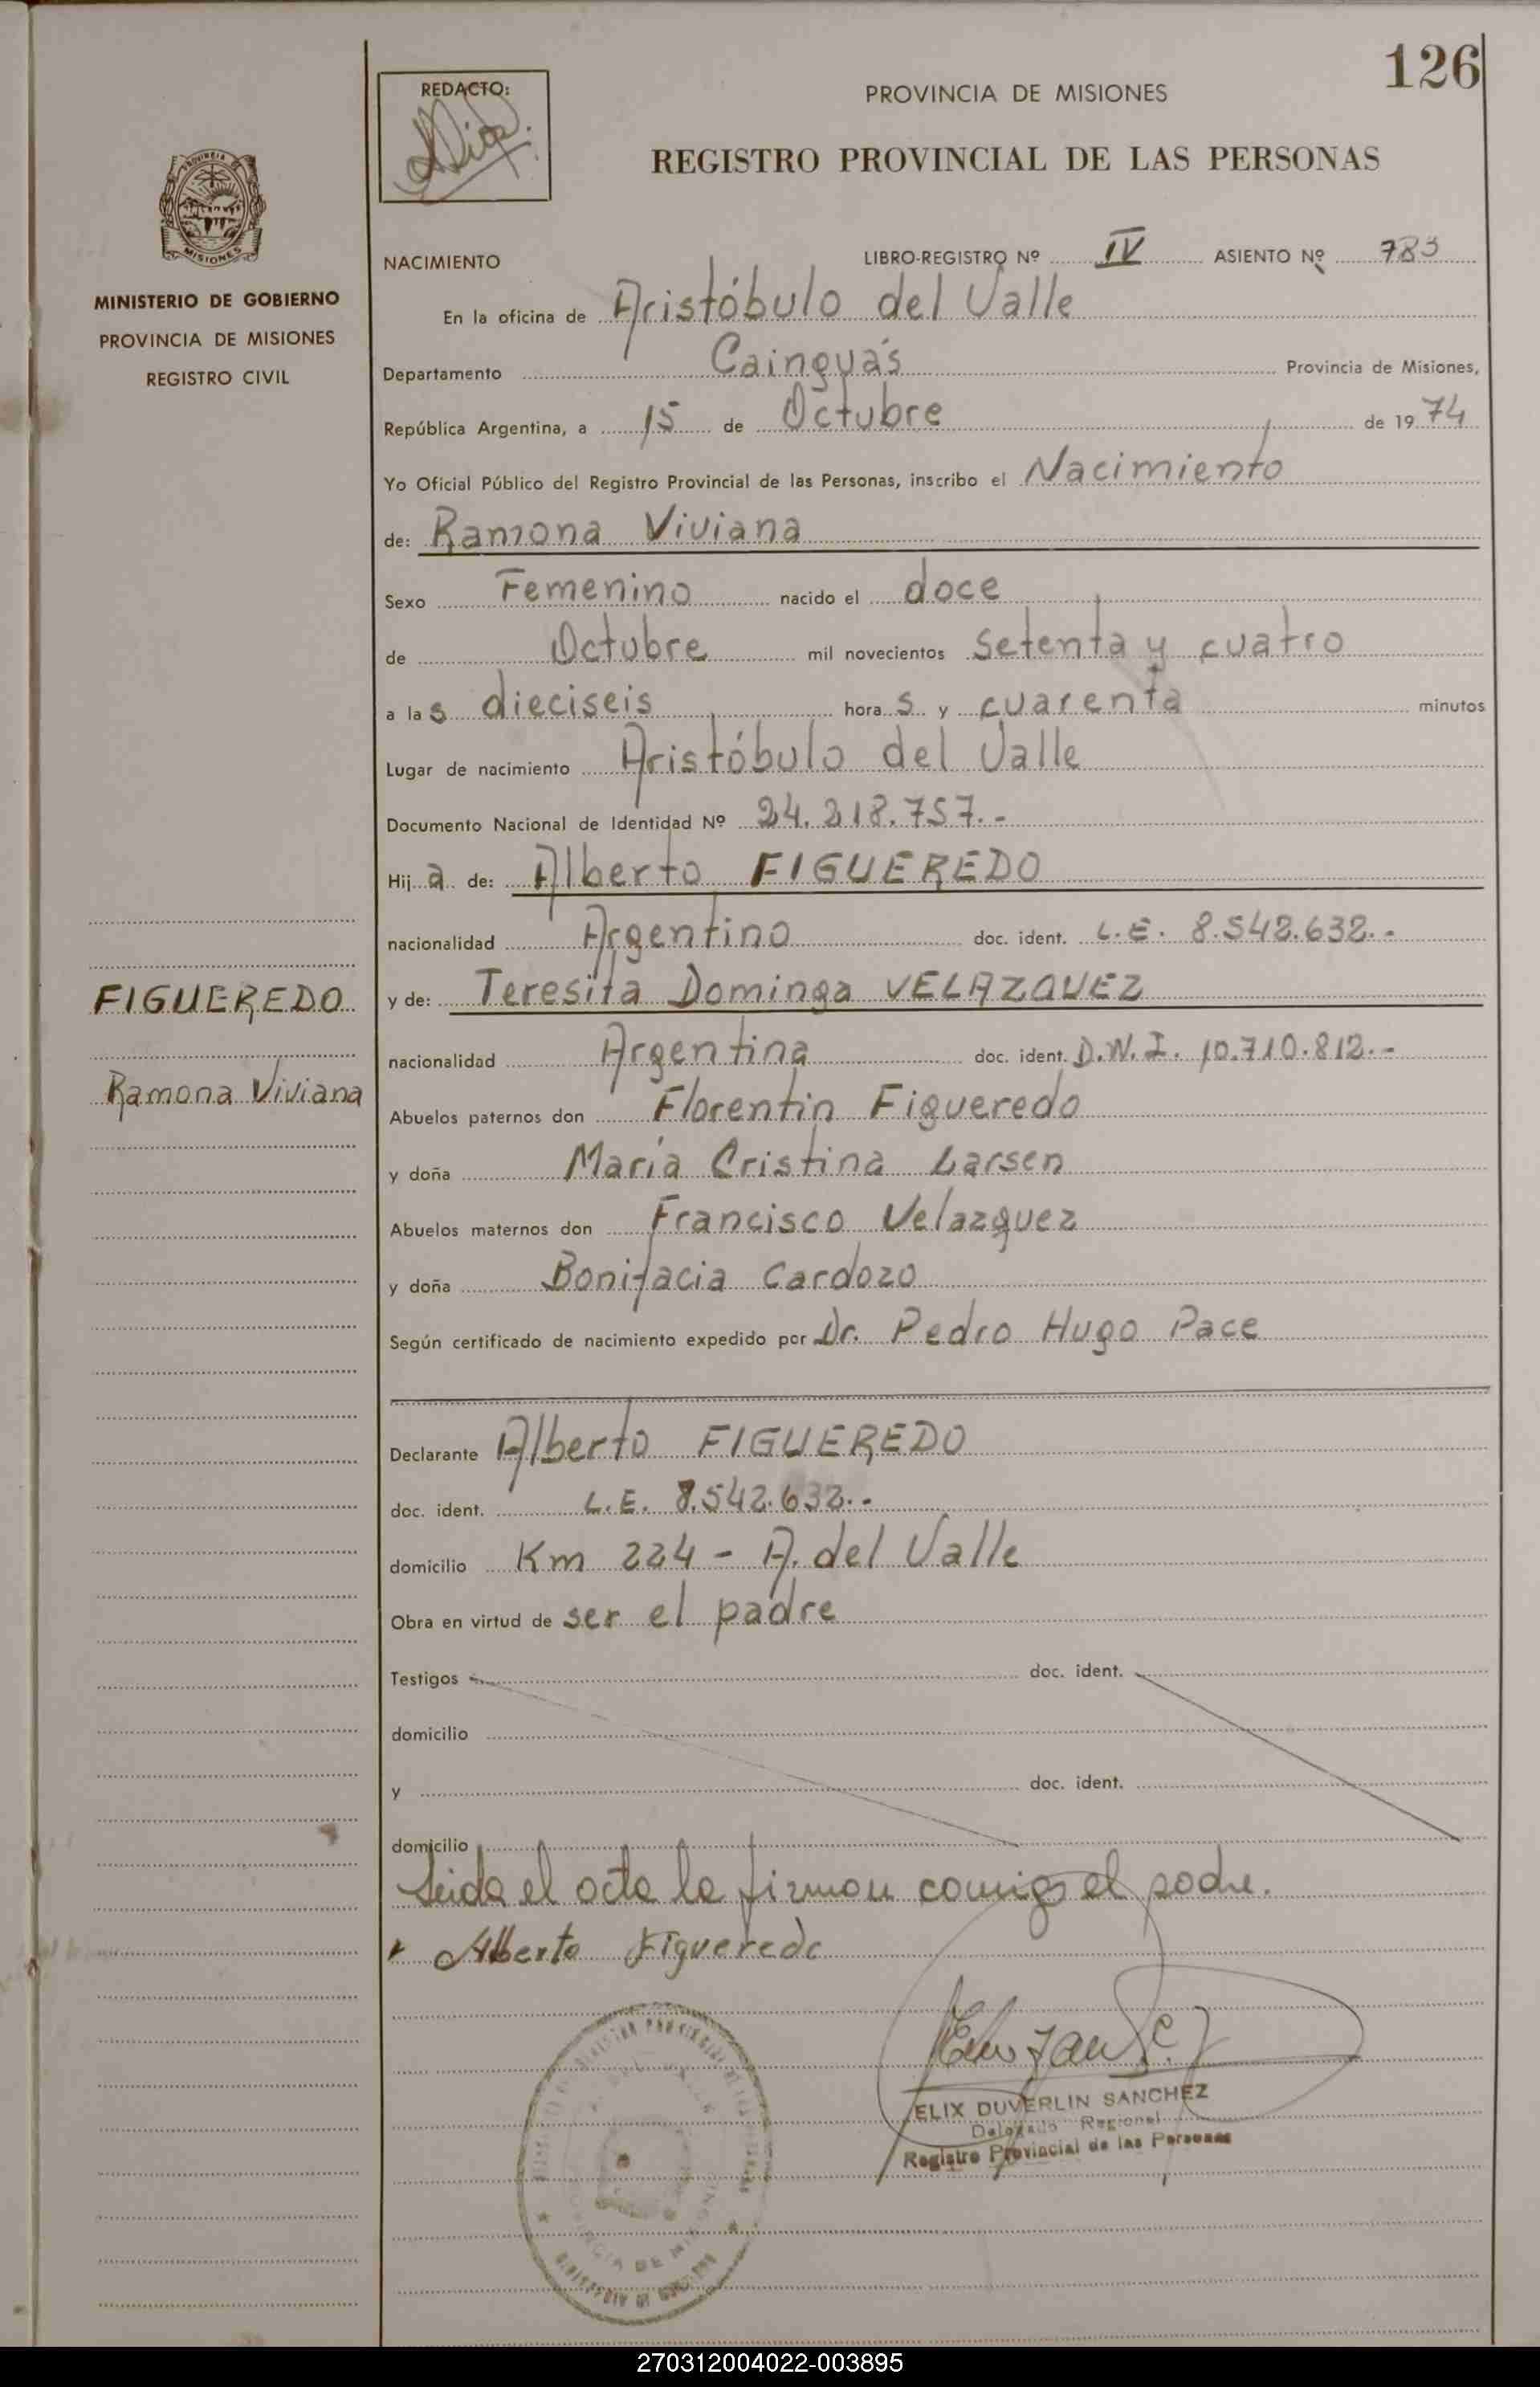 126
REDACTO:
PROVINCIA DE MISIONES
REGISTRO PROVINCIAL DE LAS PERSONAS
MISIONES
MINISTERIO DE GOBIERNO
PROVINCIA DE MISIONES
REGISTRO CIVIL
NACIMIENTO LIBRO-REGISTRO Nº IV ASIENTO Nº 783
En la oficina de Aristóbulo del Valle
Departamento Cainguás Provincia de Misiones,
República Argentina, a 15 de Octubre de 1974
Yo Oficial Público del Registro Provincial de las Personas, inscribo el Nacimiento
de: Ramona Viviana
Sexo Femenino nacido el doce
de Octubre mil novecientos setenta y cuatro
a las dieciseis horas y cuarenta minutos
Lugar de nacimiento Aristóbulo del Valle
Documento Nacional de Identidad Nº 24.218.757.-
Hija de: Alberto FIGUEREDO
nacionalidad Argentino doc. ident. L.E. 8.542.632.-
FIGUEREDO
y de: Teresita Dominga VELAZQUEZ
nacionalidad Argentina doc. ident. D.N.I. 10.710.812.-
Ramona Viviana
Abuelos paternos don Florentin Figueredo
y doña María Cristina Larsen
Abuelos maternos don Francisco Velazquez
y doña Bonifacia Cardozo
Según certificado de nacimiento expedido por Dr. Pedro Hugo Pace
Declarante Alberto FIGUEREDO
doc. ident. L.E. 8.542.632.-
domicilio Km 224 - A. del Valle
Obra en virtud de ser el padre
Testigos doc. ident.
domicilio
y doc. ident.
domicilio
Leida el acta la firman comigo el padre.
Alberto Figueredo
ELIX DUVERLIN SANCHEZ
Delegado Regional
Registro Provincial de las Personas
270312004022-003895